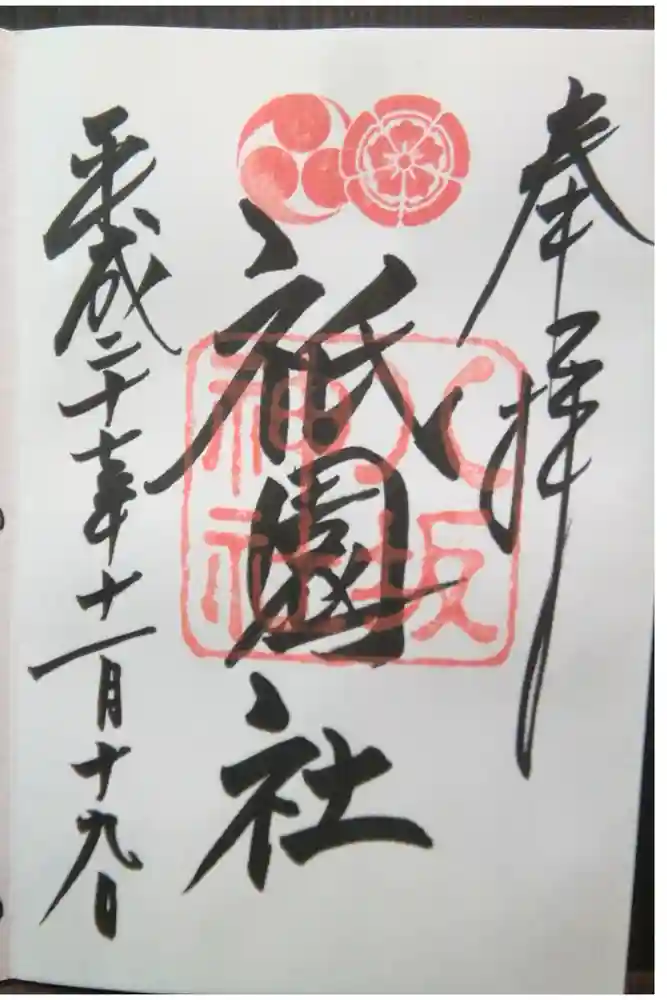 奉拝
祇園社
八坂
神社
平成二十七年十一月十九日